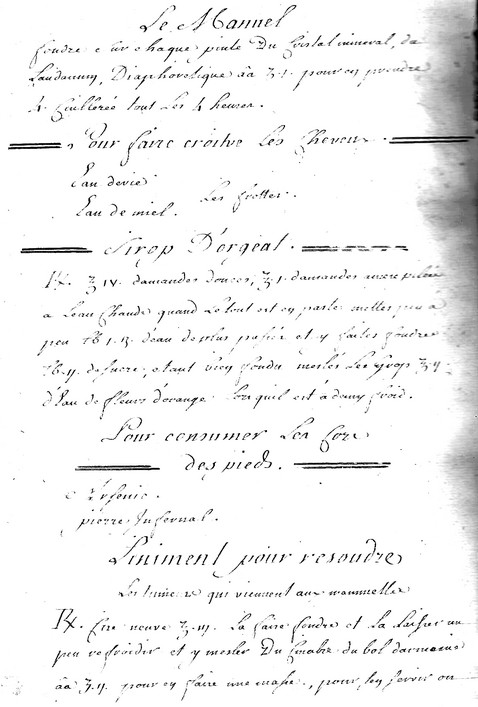 Le Mannel
fondre sur chaque pinte Du Cristal mineral, du
Laudanum, Diaphoretique āa ʒ.j. pour en prendre
4. Cuillerée tout Les 4 heures.
Pour faire croitre Les Cheveux
Eau devie
Les frotter.
Eau de miel.
Sirop D'orgeat.
℞. ℥ IV. damandes douces, ℥ j. damandes amere pilée
a Leau Chaude quand Le tout est en paste mettes peu a
peu ℔ j. ß. deau de plus passée et y faites fondre
℔ ij. de sucre, etant bien fondu meslés Le syrop ℥ ij
d'Eau de fleurs d'orange lorsquil est à demy froid.
Pour consumer Les Cors
des pieds.
Arsenic.
pierre Infernal.
Liniment pour resoudre
Les qui viennent aux mammelles
℞. Cire neuve ℥. La faire fondre et La Laisser un
peu refroidir et y mesler Du Cinabre du bol darmenie
āa ʒ. ij. pour en faire une masse, pour sen servir on